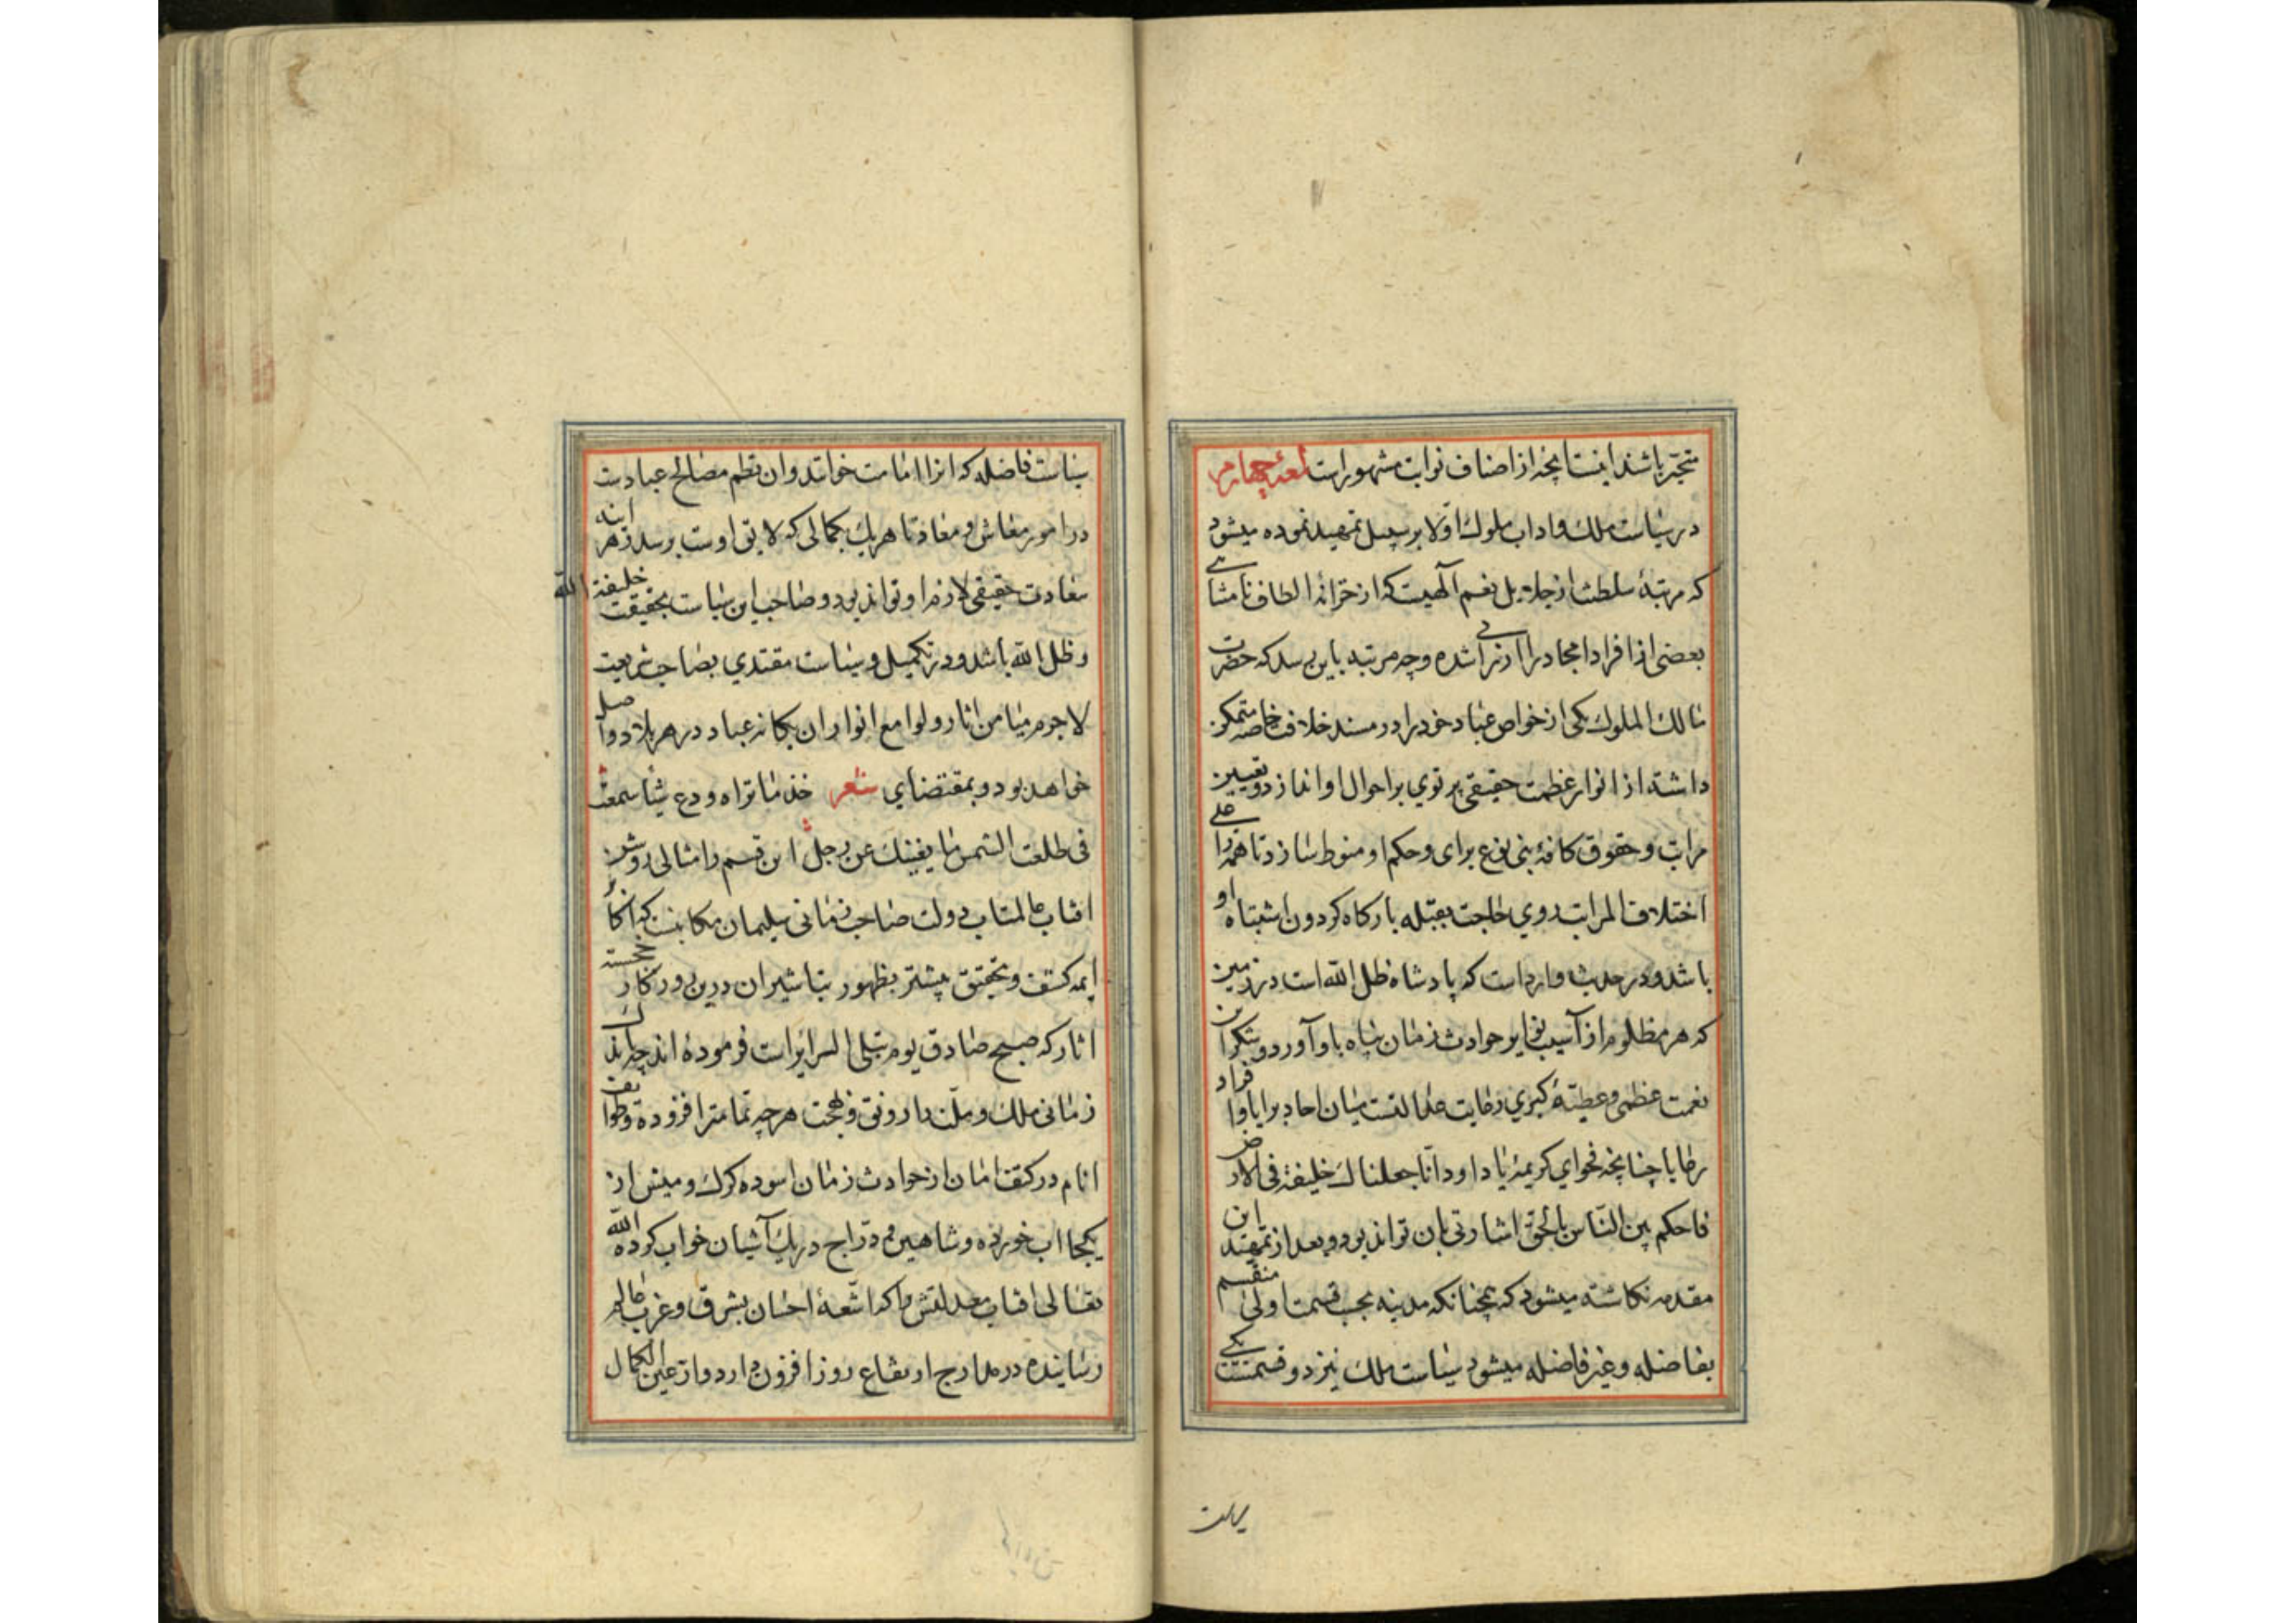 متحیر باشند اینست آنچه از اصناف نوابت مشهور است لمعۀ چهارم
در سیاست ملک و اداب ملوک اولا بر سبیل تمهید نموده میشود
که مرتبۀ سلطنت از جلایل نعم آلهیست که از خزانۀ الطاف نامتناهی
بعضی از افراد امجاد را ارزانی شده و چه مرتبه باین رسد که حضرت
مالک الملوک یکی از خواص عباد خود را در مسند خلافت خاصه متمکن
داشته از انوار عظمت حقیقی پرتوی بر احوال او اندازد و تعیین
مراتب و حقوق کافۀ بنی نوع برای و حکم او منوط سازد تا همه را علی
اختلاف المراتب روی حاجت بقبله بارکاه کردون اشتباه او
باشد و در حدیث وارد است که پادشاه ظل الله است در زمین
که هر مظلوم از آسیب نوایر حوادث زمان پناه باو آورد و شکر این
نعمت عظمی و عطیۀ کبری رعایت عدالتست میان احاد برایا و افراد
رعایا چنانچه فحوای کریمۀ یا داود انا جعلناک خلیفة فی الارض
فاحکم بین الناس بالحق اشارتی بان تواند بود و بعد از تمهید این
مقدمه نکاشته میشود که همچنانکه مدینه بحسب قسمت اولی منقسم
بفاضله و غیر فاضله میشود سیاست ملک نیز دو قسمست یکی
سیاست فاضله که انرا امامت خوانند و ان نظم مصالح عبادست
در امور معاش و معاد تا هریک بکمالی که لایق اوست برسد و هر اینه
سعادت حقیقی لازم او تواند بود و صاحب این سیاست بحقیقت خلیفة الله
و ظل الله باشد و در تکمیل و سیاست مقتدی بصاحب شریعت
لاجرم میامن اثار و لوامع انوار ان بکانه عباد در هر بلاد واصل
خواهد بود و بمقتضای شعر خذ ما تراه و دع شیئا سمعت
فی طلعت الشمس ما یغنیک عن رجل این قسم را مثالی روشن
افتاب عالمتاب دولت صاحب زمانی سلیمان مکانیست که اکابر
ایمه کشف و تحقیق پیشتر بظهور تباشیر ان درین روزکار خجسته
اثار که صبح صادق یوم تبلی السرایر است فرموده اند چه باندک
زمانی ملک و ملت را رونق و بهجت هرچه تمامتر افزوده و طوایف
انام در کنف امان از حوادث زمان اسوده کرک و میش از
یکجا اب خورده و شاهین و دراج در یک آشیان خواب کرده الله
تعالی افتاب معدلتش را که اشعۀ احسان بشرق و غرب عالم
رسانیده در مدارج ارتفاع روز افزون دارد و از عین الکمال
سیاست